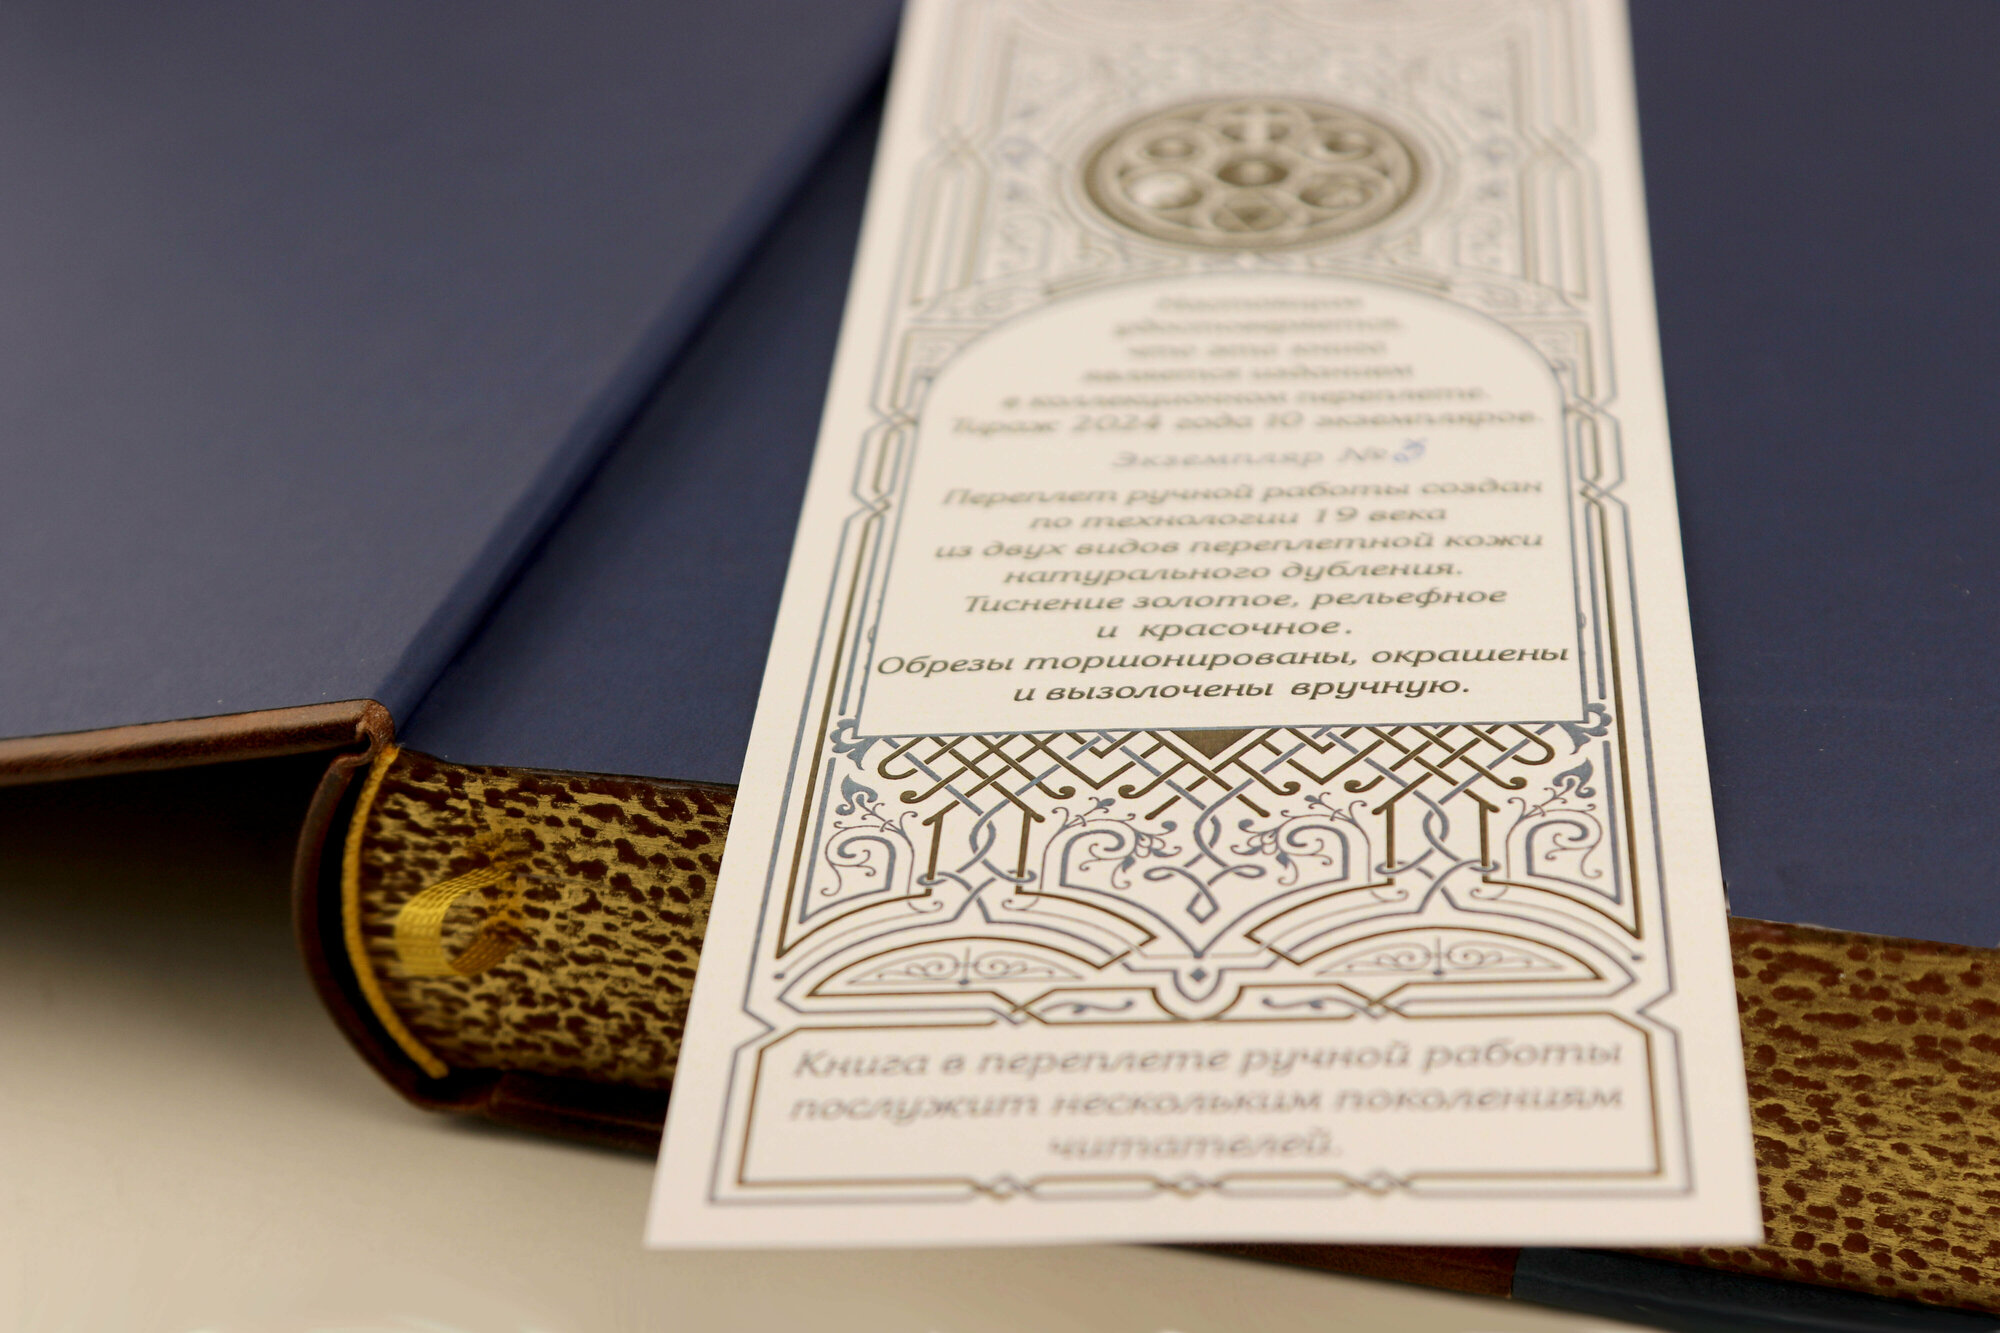 Настоящим
удостоверяется,
что эта книга
является изданием
в коллекционном переплете.
Тираж 2024 года 10 экземпляров.
Экземпляр № 3
Переплет ручной работы создан
по технологии 19 века
из двух видов переплетной кожи
натурального дубления.
Тиснение золотое, рельефное
и красочное.
Обрезы торшонированы, окрашены
и вызолочены вручную.
Книга в переплете ручной работы
послужит нескольким поколениям
читателей.